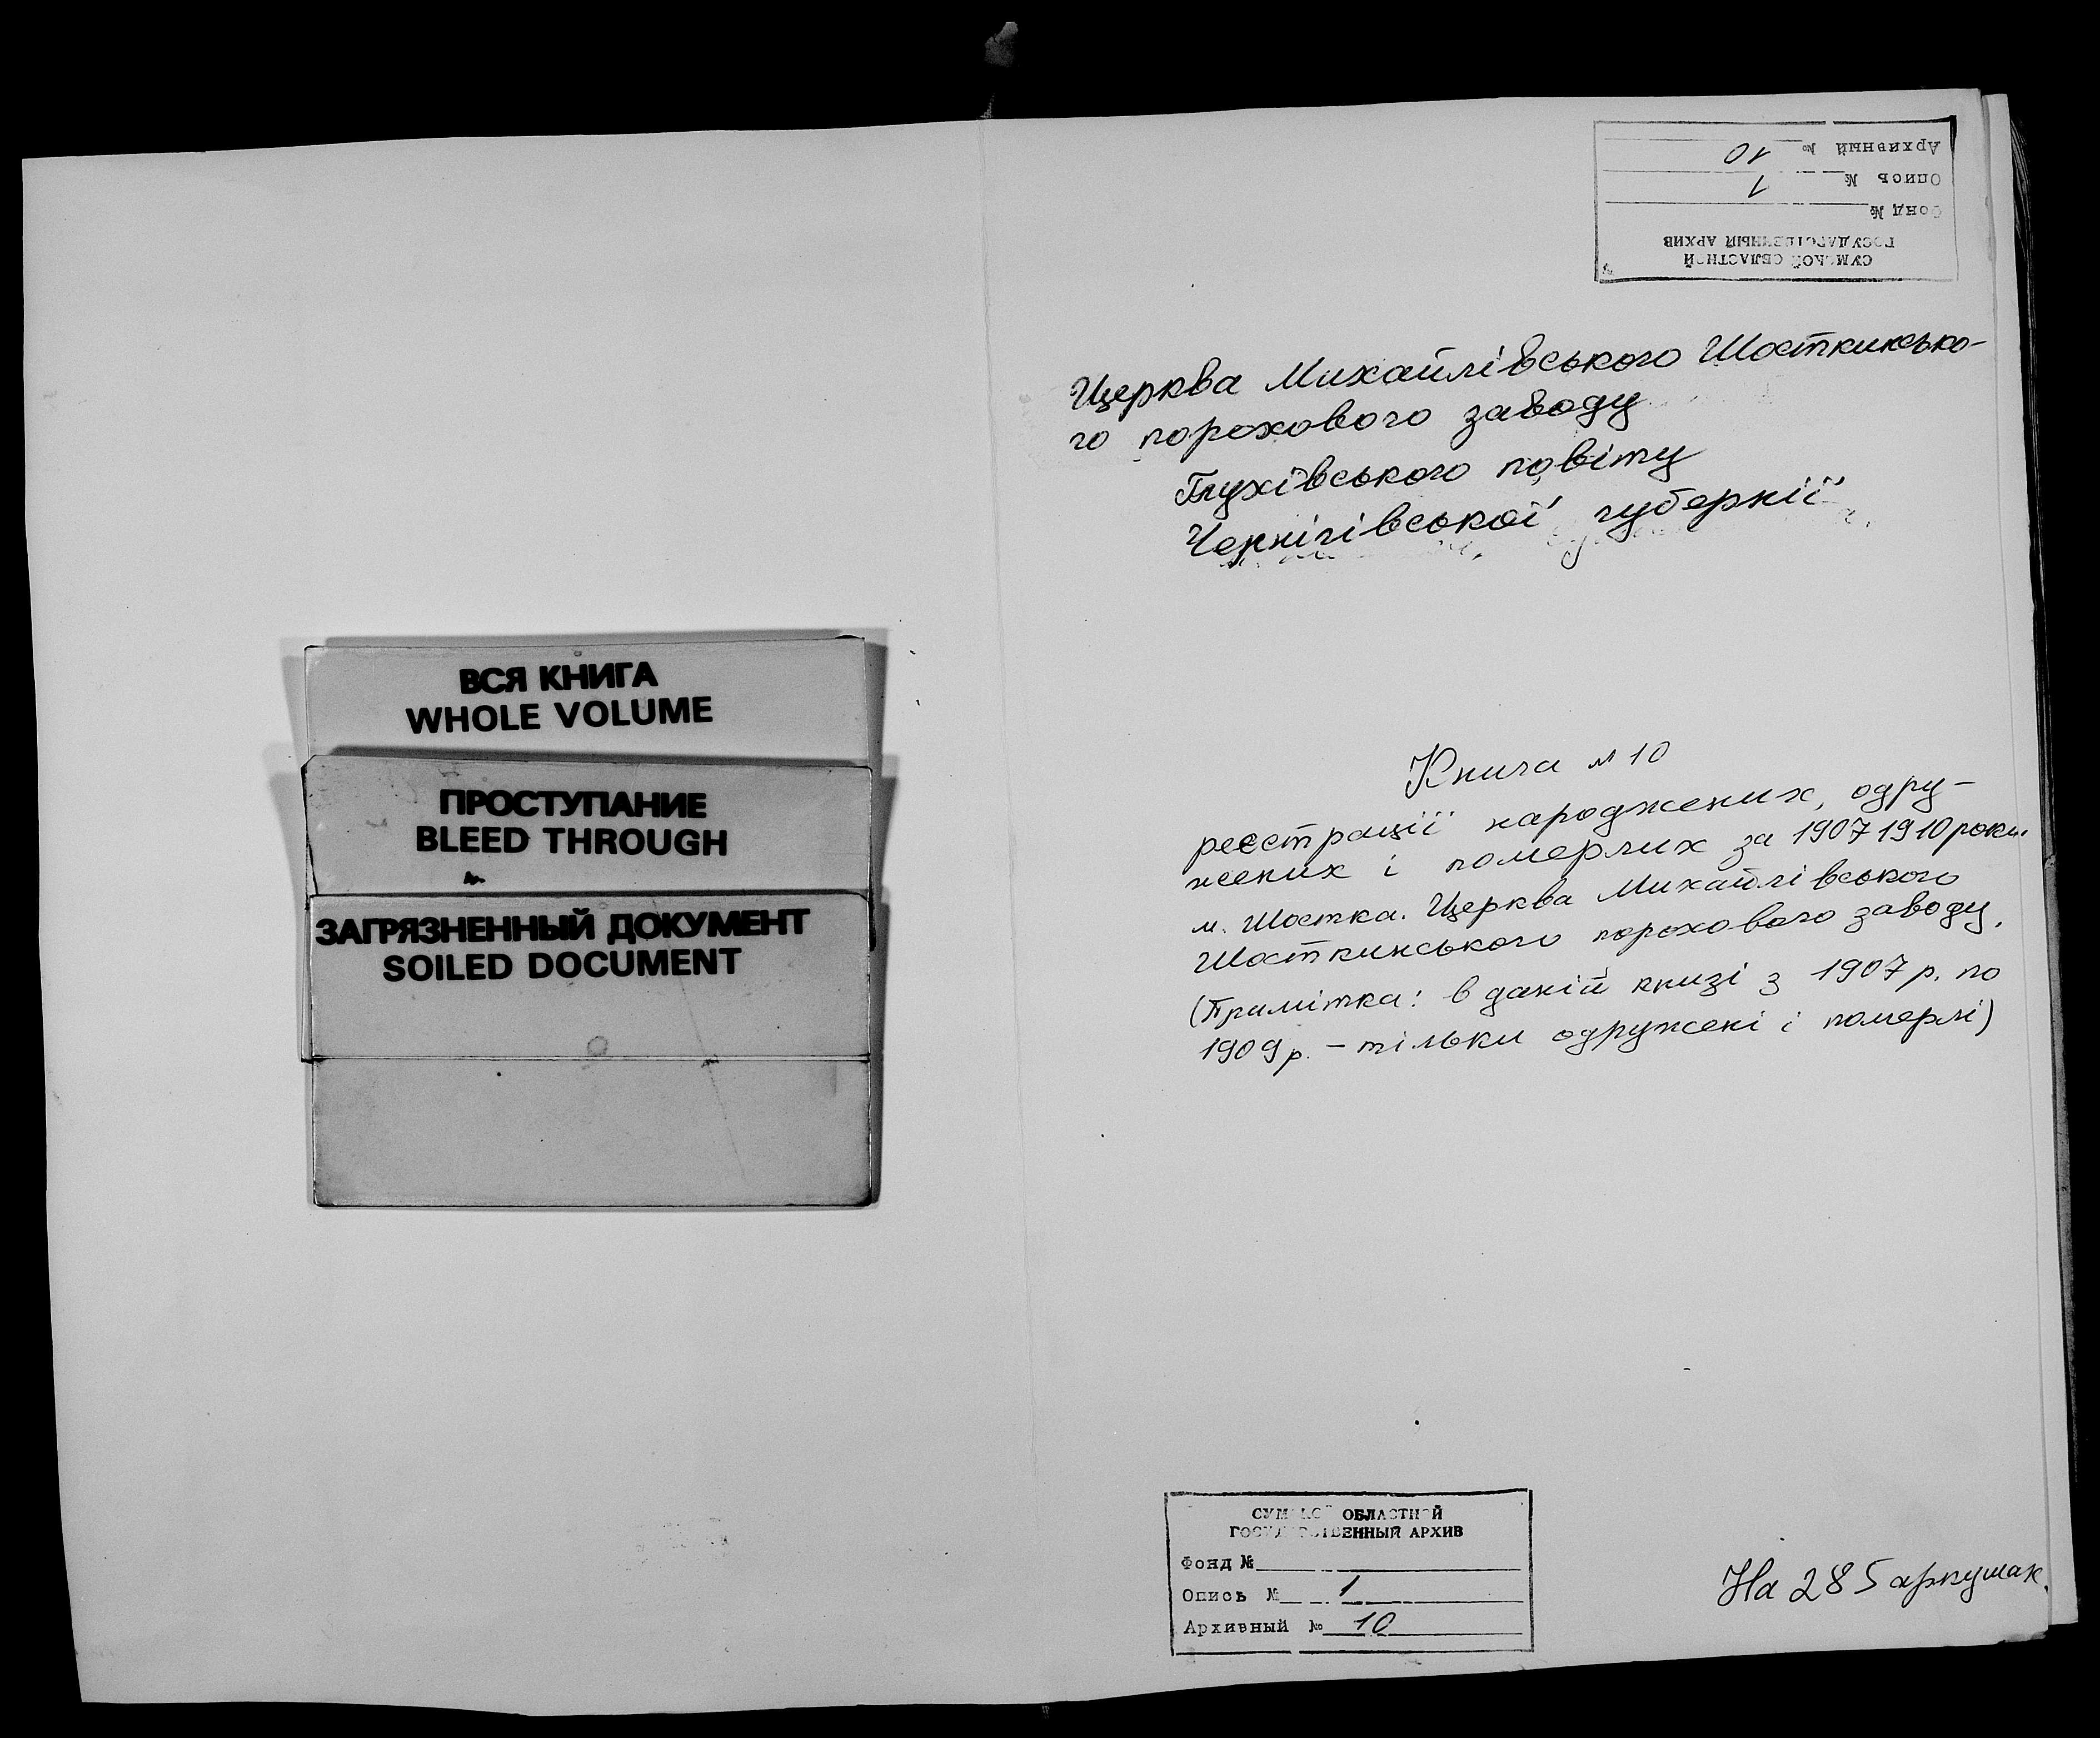 ВСЯ КНИГА
WHOLE VOLUME
ПРОСТУПАНИЕ
BLEED THROUGH
ЗАГРЯЗНЕННЫЙ ДОКУМЕНТ
SOILED DOCUMENT
СУМСКОЙ ОБЛАСТНОЙ
ГОСУДАРСТВЕННЫЙ АРХИВ
Фонд №
Опись № 1
Архивный № 10
Церква Михайлівського Шосткинсько-
го порохового заводу
Глухівського повіту
Чернігівської губернії
Книга № 10
реєстрації народжених, одру-
жених і померлих за 1907 1910 роки.
м. Шостка. Церква Михайлівського
Шосткинського порохового заводу.
(Примітка: в даній книзі з 1907 р. по
1909 р. – тільки одружені і померлі)
СУМСКОЙ ОБЛАСТНОЙ
ГОСУДАРСТВЕННЫЙ АРХИВ
Фонд №
Опись № 1
Архивный № 10
На 285 аркушах.